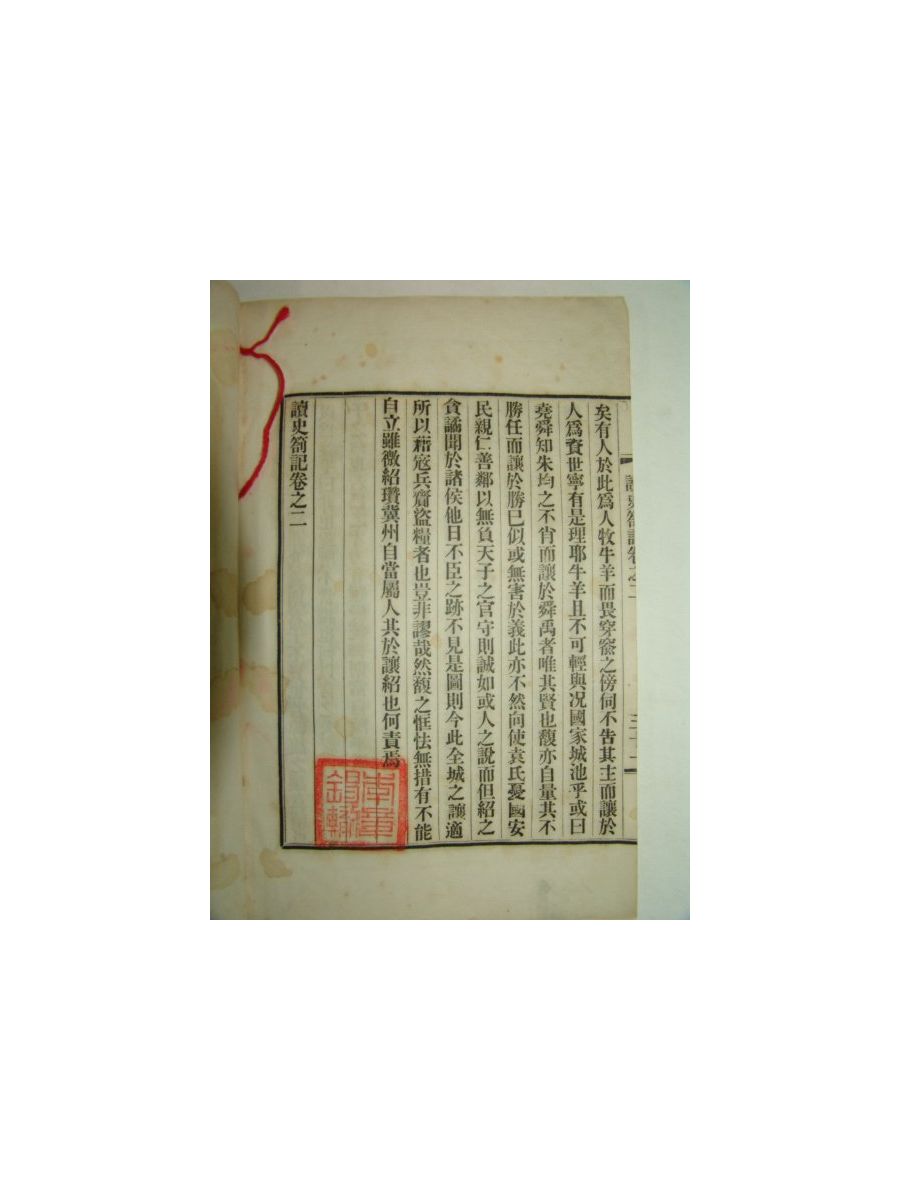 矣有人於此爲人牧牛羊而畏穿窬之傍伺不告其主而讓於
人爲資世寧有是理耶牛羊且不可輕與况國家城池乎或曰
堯舜知朱均之不肖而讓於舜禹者唯其賢也馥亦自量其不
勝任而讓於勝已似或無害於義此亦不然向使袁氏憂國安
民親仁善鄰以無負天子之官守則誠如或人之說而但紹之
貪譎聞於諸侯他日不臣之跡不見是圖則今此全城之讓適
所以藉寇兵齎盜糧者也豈非謬哉然馥之恇怯無措有不能
自立雖微紹瓚冀州自當屬人其於讓紹也何責焉
讀史箚記卷之二
讀史箚記卷之二